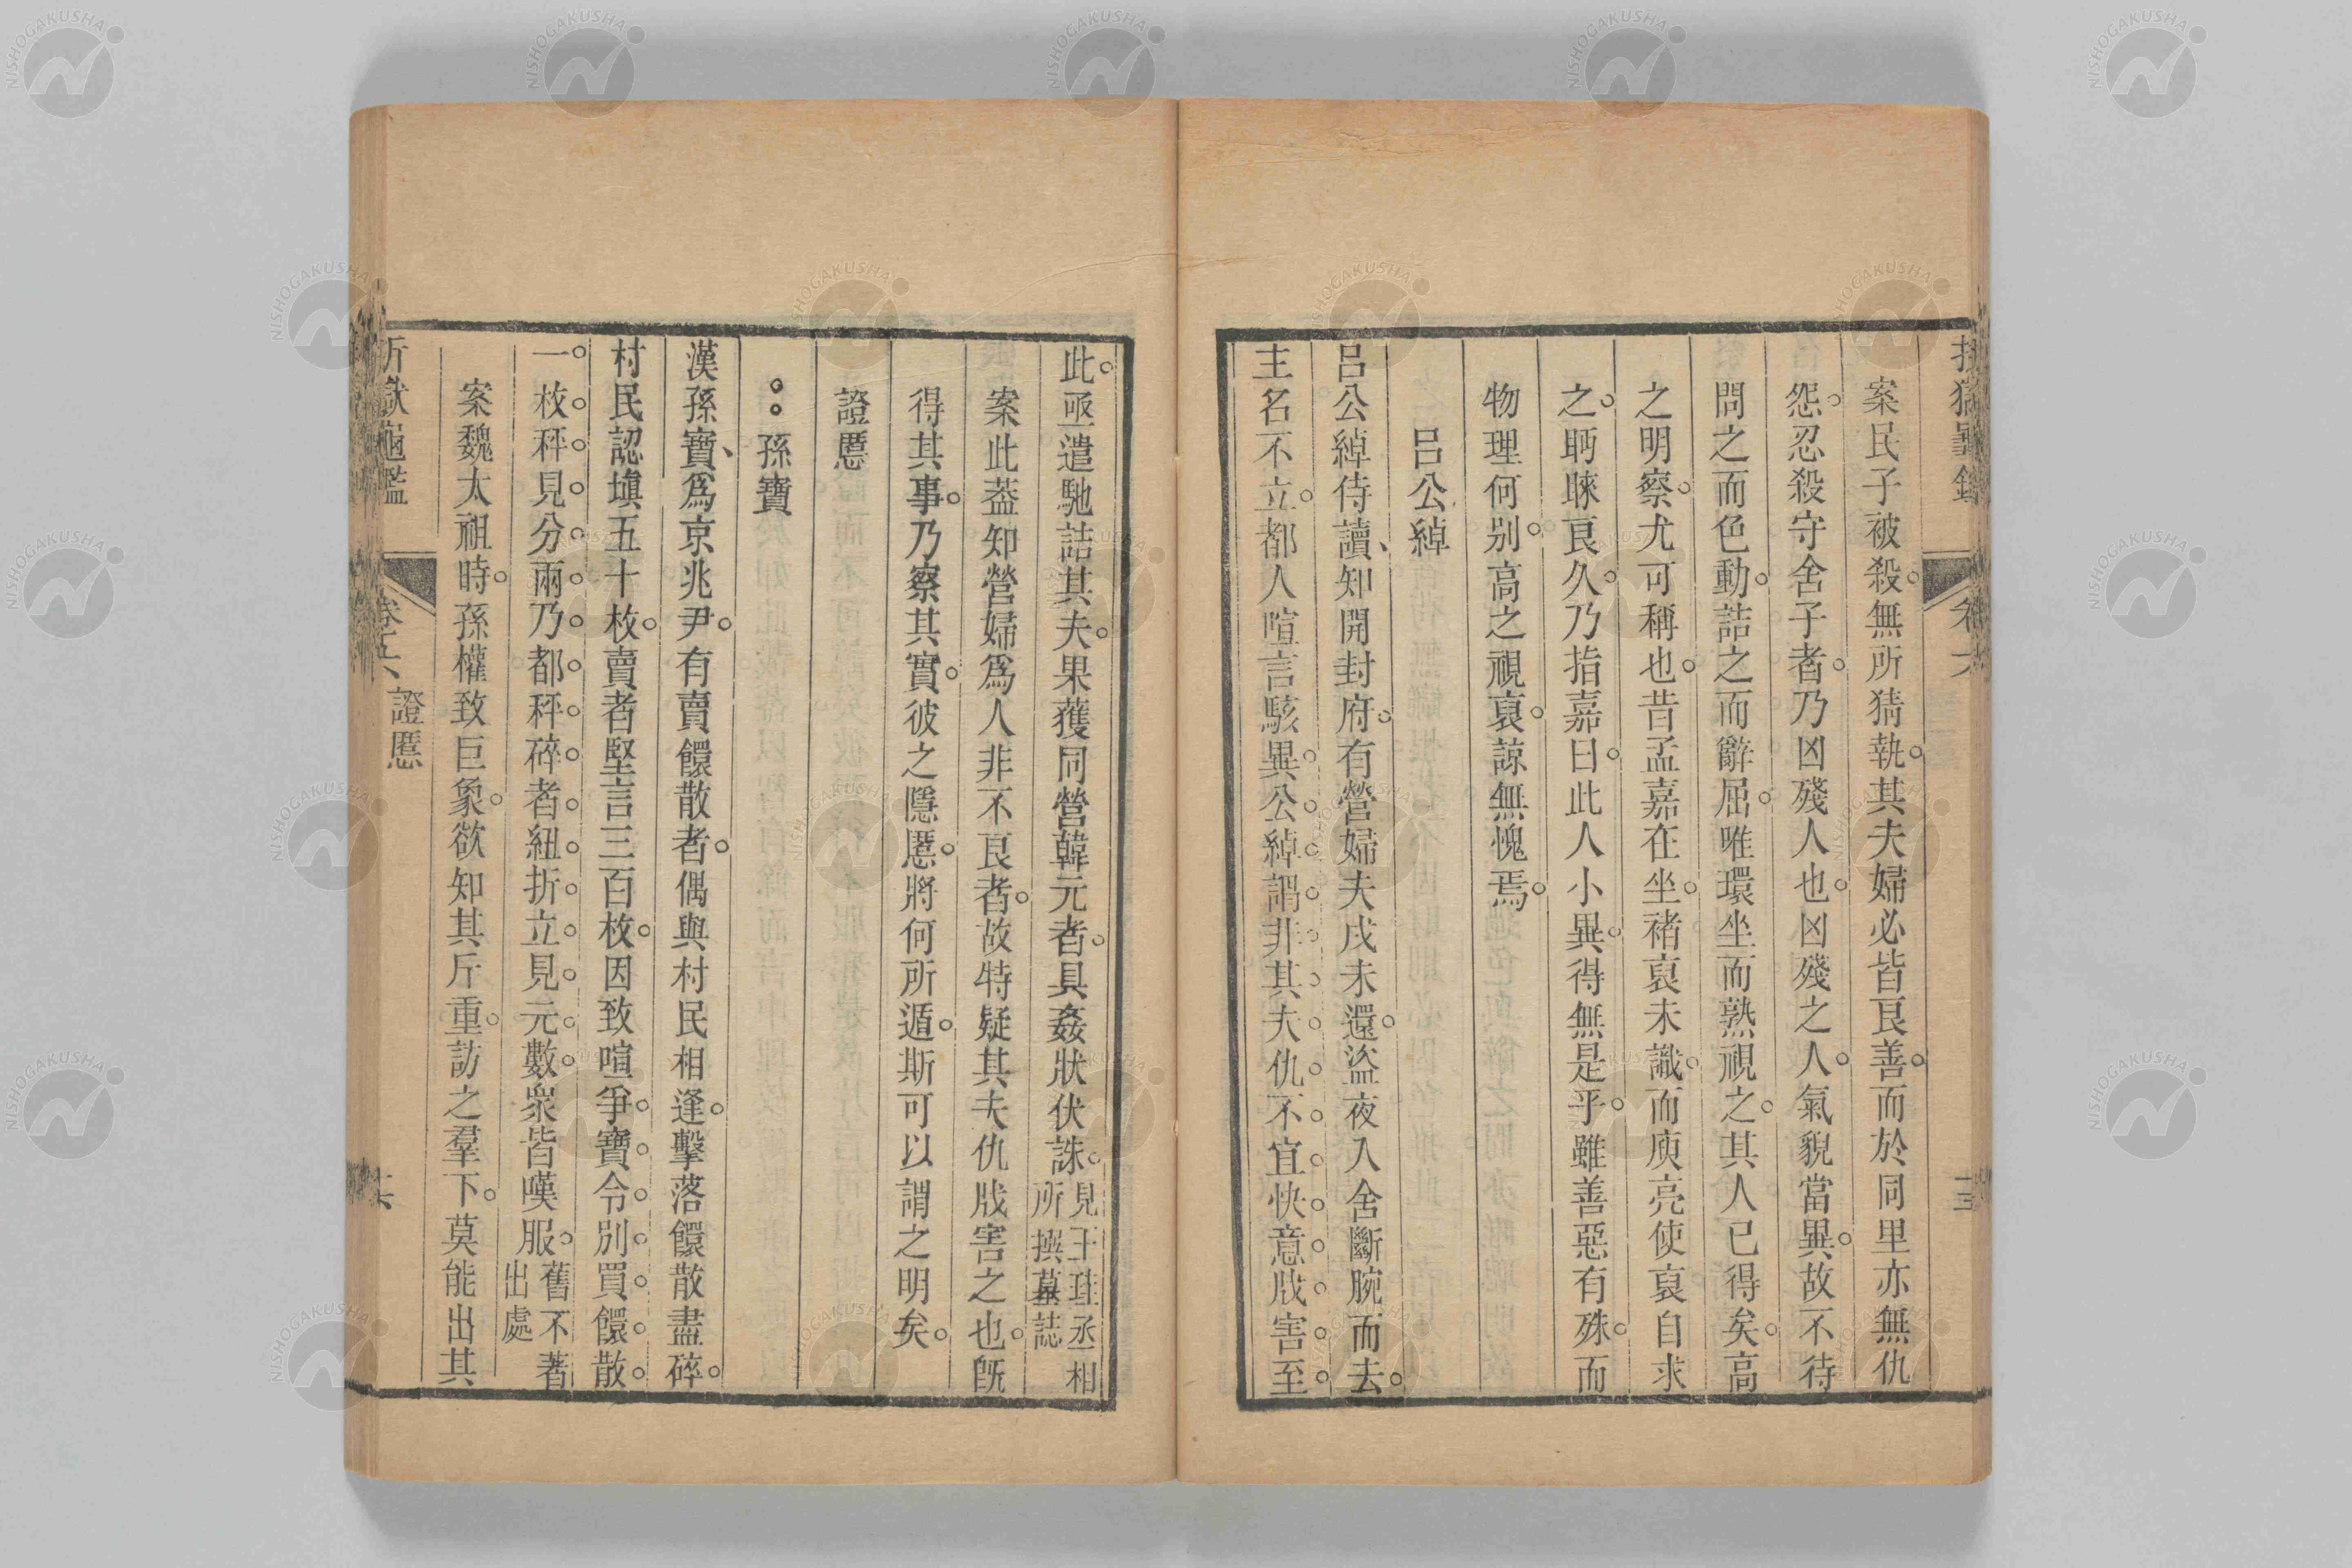 案民子被殺。無所猜執。其夫婦必皆良善。而於同里亦無仇
怨。忍殺守舍子者。乃凶殘人也。凶殘之人。氣貌當異。故不待
問之而色動。詰之而辭屈。唯環坐而熟視之。其人已得矣。高
之明察。尤可稱也。昔孟嘉在坐。褚裒未識。而庾亮使裒自求
之。眄睞良久。乃指嘉曰。此人小異。得無是乎。雖善惡有殊。而
物理何别。高之視裒。諒無愧焉。
呂公綽
呂公綽侍讀、知開封府。有營婦夫戍未還。盜夜入舍斷腕而去。
主名不立。都人喧言駭異。公綽。謂。非。其。夫。仇。不。宜。快。意。戕。害。至。
此。亟遣馳詰其夫。果獲同營韓元者。具姦狀伏誅。見王珪丞相所撰墓誌
案此葢知營婦爲人非不良者。故特疑其夫仇戕害之也。旣
得其事。乃察其實。彼之隱慝。將何所遁。斯可以謂之明矣。
證慝
孫寶
漢孫寶、爲京兆尹。有賣饆散者。偶與村民相逢。擊落饆散盡碎。
村民認塡五十枚。賣者堅言三百枚。因致喧爭。寶。令。別。買。饆。散。
一。枚。秤。見。分。兩。乃。都。秤。碎。者。紐。折。立。見。元。數。衆皆嘆服。舊不著出處
案魏太祖時。孫權致巨象。欲知其斤重。訪之羣下。莫能出其
折獄龜鑑 卷六 證慝
NISHOGAKUSHA